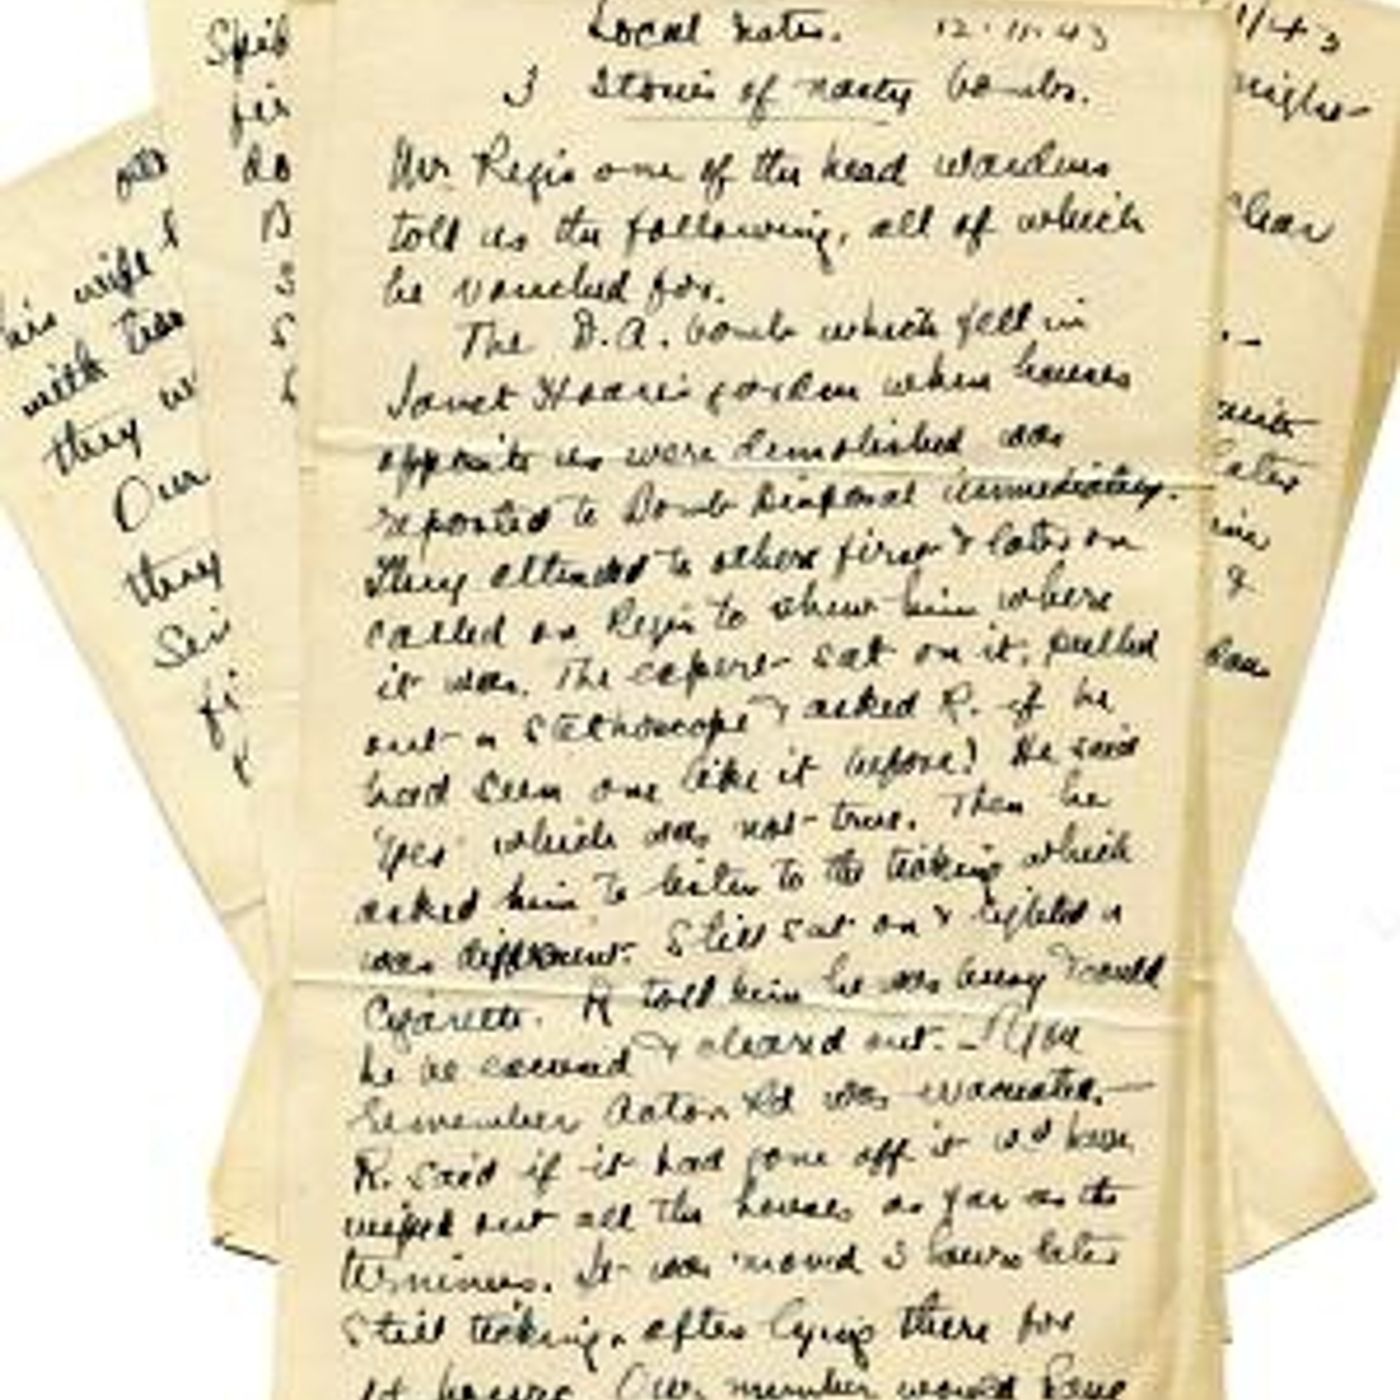 Local notes. 12.11.43
3 Stories of nasty bombs.
Mr. Regis one of the head wardens
told us the following, all of which
he vouched for.
The D.A. bomb which fell in
Janet Hoare's garden when houses
opposite us were demolished was
reported to Bomb Disposal immediately.
They attended to others first & later on
called on Regis to shew him where
it was. The expert sat on it, pulled
out a stethoscope & asked R. if he
had seen one like it before? He said
'Yes' which was not true. Then he
asked him to listen to the ticking which
was different. Still sat on & lighted a
Cigarette. R told him he was busy & could
he be excused & cleared out. — You
remember Acton Rd was evacuated. —
R. said if it had gone off it wd have
wiped out all the houses as far as the
terminus. It was moved 3 hours later
still ticking, after lying there for
hours. Our member would have
his wife
with
they
Our
they
do
/43
clear
later
&